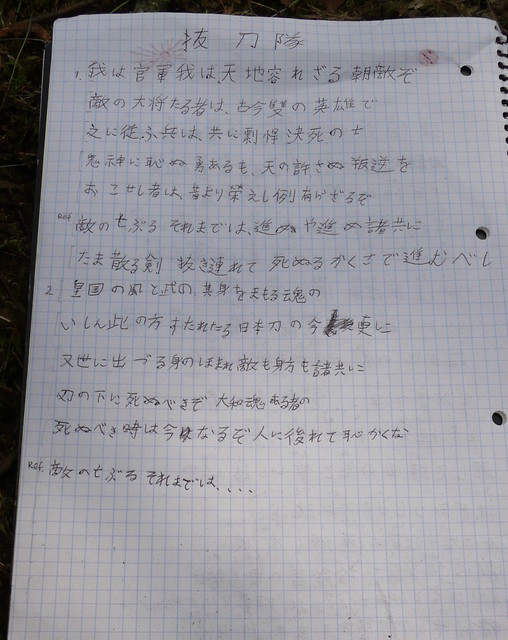 抜刀隊
1. 我は官軍我は、天地容れざる朝敵ぞ
敵の大将たる者は、も今雙の英雄で
之に従ふ兵は、共に剽悍決死の士
鬼神に恥ぬ勇あるも、天の許さぬ叛逆を
おこせし者は、昔より榮えし例有らざるぞ
Ref. 敵の亡ぶるそれまでは、進めや進め諸共に
たま散る剣 抜き連れて 死ぬるかくごで進むべし
2. 皇国の風と武の其身をまもる魂の
いしん此の方すたれたる日本刀の今更に
又世に出づる身のほまれ敵も身方も諸共に
刃の下に死ぬべきぞ 大和魂ある者の
死ぬべき時は今なるぞ人に後れて恥かくな
Ref. 敵の亡ぶるそれまでは....